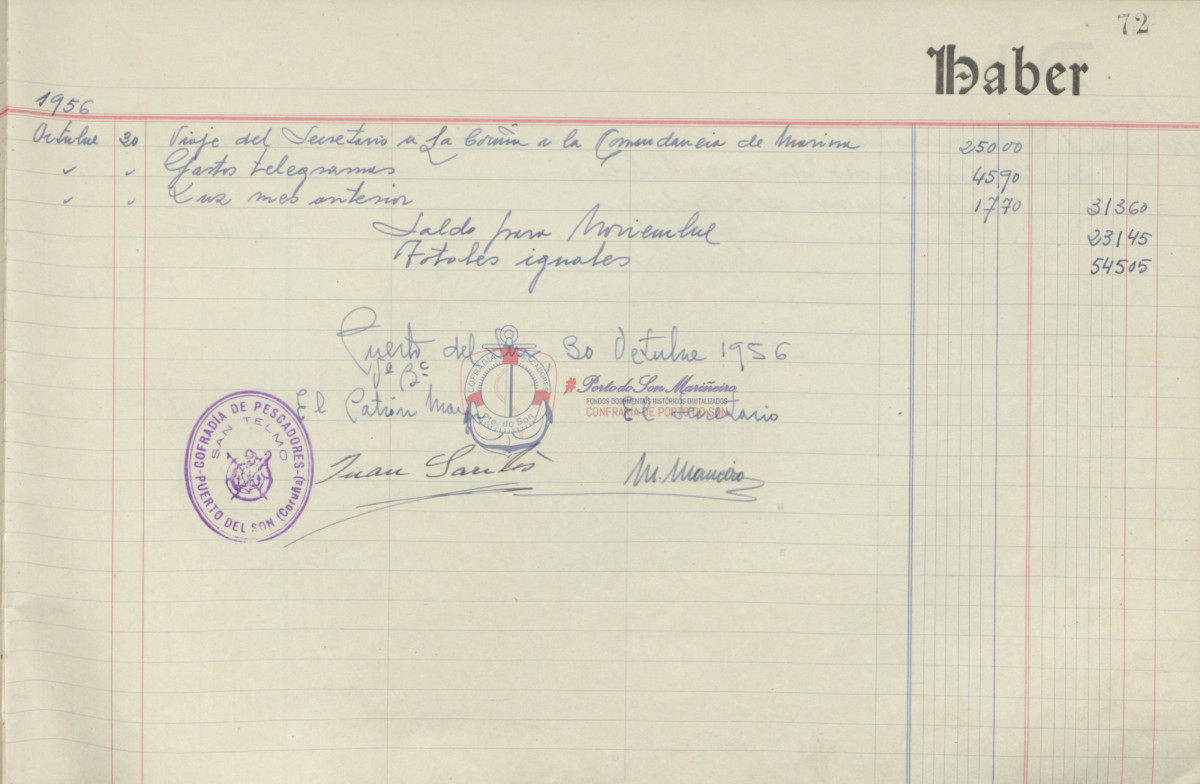 72
Haber
1956
Octubre 30 Viaje del Secretario a La Coruña a la Comandancia de Marina 250 00
" " Gastos telegramas 45 90
" " Luz mes anterior 17 70 313 60
Saldo para Noviembre 231 45
Totales iguales 545 05
Puerto del Son 30 Octubre 1956
Vº Bº
El Patrón Mayor El Secretario
Juan Santos M. Maneiro
COFRADÍA DE PESCADORES
SAN TELMO
PUERTO DEL SON (Coruña)
COFRADIA PESCADORES
Pto. do Son
#Porto do Son Mariñeiro
FONDOS DOCUMENTAIS HISTÓRICOS DIXITALIZADOS
CONFRARÍA DE PORTO DO SON